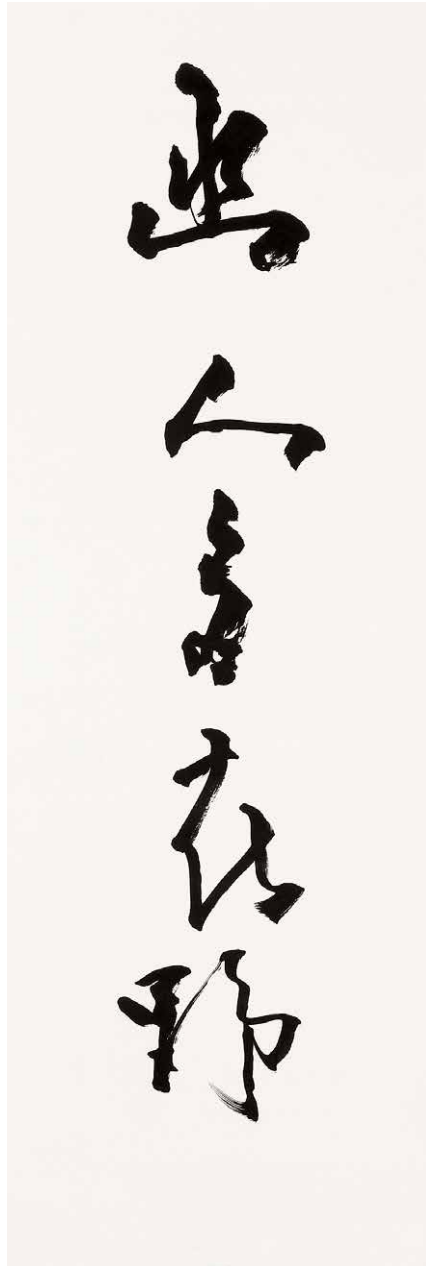 幽人意在野